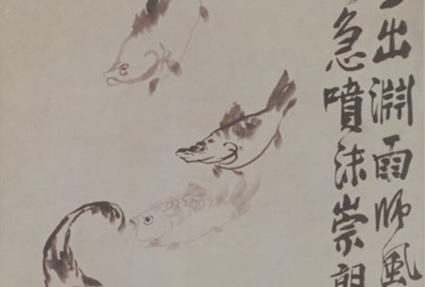 出淵雨師風
急噴沫崇朝